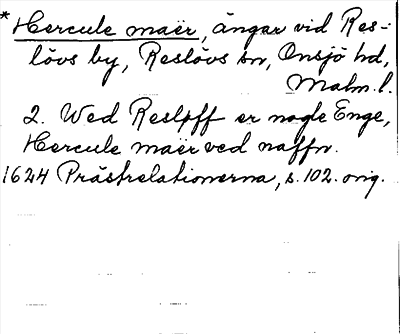 * Hercule maër, ängar vid Res-
lövs by, Reslövs sn, Onsjö hd,
Malm. l.
2. Wed Resløff er nogle Enge,
Hercule maër ved naffn.
1624 Prästrelationerna, s. 102. orig.